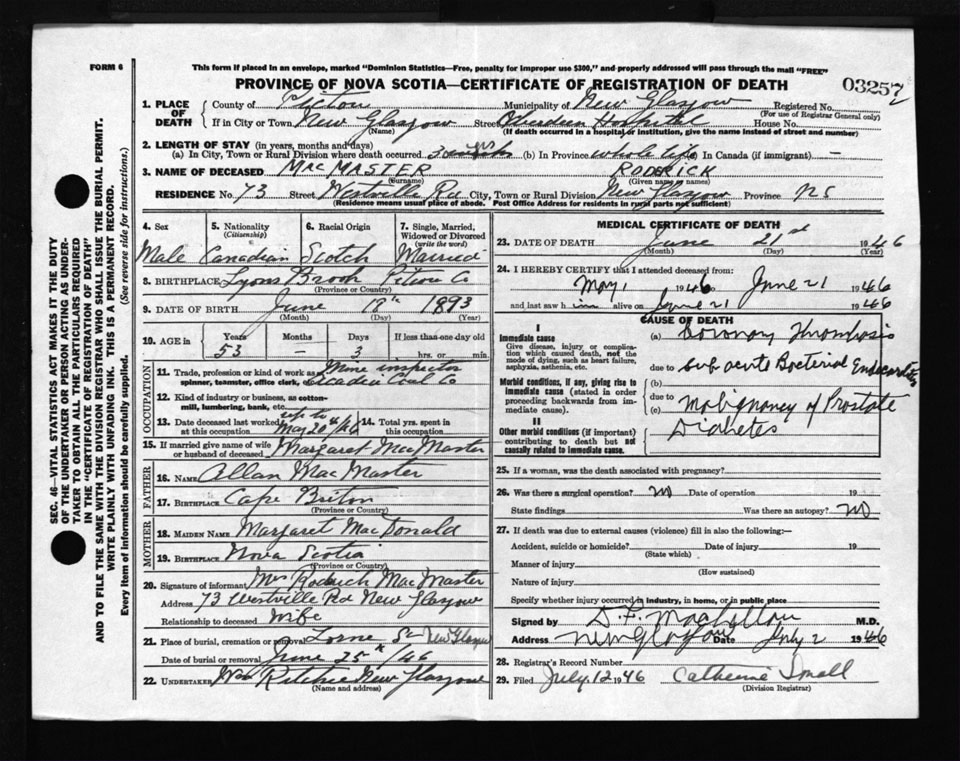 FORM 6
This form if placed in an envelope, marked "Dominion Statistics—Free, penalty for improper use $300," and properly addressed will pass through the mail "FREE"
PROVINCE OF NOVA SCOTIA—CERTIFICATE OF REGISTRATION OF DEATH
03257
1. PLACE OF DEATH
County of Pictou Municipality of New Glasgow Registered No.
(For use of Registrar General only)
If in City or Town New Glasgow Street Aberdeen Hospital House No.
(Name) (If death occurred in a hospital or institution, give the name instead of street and number)
2. LENGTH OF STAY (in years, months and days)
(a) In City, Town or Rural Division where death occurred (b) In Province whole life (c) In Canada (if immigrant) —
3. NAME OF DECEASED MACMASTER RODERICK
(Surname) (Given name or names)
RESIDENCE No. 73 Street Westville Rd City, Town or Rural Division New Glasgow Province NS
(Residence means usual place of abode. Post Office Address for residents in rural parts not sufficient)
4. Sex 5. Nationality (Citizenship) 6. Racial Origin 7. Single, Married, Widowed or Divorced (write the word)
Male Canadian Scotch Married
8. BIRTHPLACE Lyons Brook Pictou Co
(Province or Country)
9. DATE OF BIRTH June 18th 1893
(Month) (Day) (Year)
10. AGE in Years Months Days If less than one day old
53 — 3 hrs. or min.
OCCUPATION
11. Trade, profession or kind of work as spinner, teamster, office clerk, Mine inspector
Acadia Coal Co
12. Kind of industry or business, as cotton-mill, lumbering, bank, etc.
13. Date deceased last worked at this occupation up to May 20th/46 14. Total yrs. spent in this occupation
15. If married give name of wife or husband of deceased Margaret MacMaster
FATHER
16. NAME Allan MacMaster
17. BIRTHPLACE Cape Breton
(Province or Country)
MOTHER
18. MAIDEN NAME Margaret MacDonald
19. BIRTHPLACE Nova Scotia
(Province or Country)
20. Signature of informant Mrs Roderick MacMaster
Address 73 Westville Rd New Glasgow
Relationship to deceased Wife
21. Place of burial, cremation or removal Lorne St New Glasgow
Date of burial or removal June 25th/46
22. UNDERTAKER Wm Ritchie New Glasgow
(Name and address)
MEDICAL CERTIFICATE OF DEATH
23. DATE OF DEATH June 21st 1946
(Month) (Day) (Year)
24. I HEREBY CERTIFY that I attended deceased from:
May 1 1946 to June 21 1946
and last saw him alive on June 21 1946
CAUSE OF DEATH
I
Immediate cause
Give disease, injury or complication which caused death, not the mode of dying, such as heart failure, asphyxia, asthenia, etc.
(a) Coronary Thrombosis
due to Sub acute Bacterial Endocarditis
Morbid conditions, if any, giving rise to immediate cause (stated in order proceeding backwards from immediate cause).
(b)
due to
(c) Malignancy of Prostate
II
Other morbid conditions (if important) contributing to death but not causally related to immediate cause.
Diabetes
25. If a woman, was the death associated with pregnancy?
26. Was there a surgical operation? No Date of operation 19
State findings Was there an autopsy? No
27. If death was due to external causes (violence) fill in also the following:—
Accident, suicide or homicide? Date of injury 19
(State which)
Manner of injury
(How sustained)
Nature of injury
Specify whether injury occurred in industry, in home, or in public place
Signed by M.D.
Address New Glasgow Date July 2 1946
28. Registrar's Record Number
29. Filed July 12 1946 Catherine Small
(Division Registrar)
SEC. 46—VITAL STATISTICS ACT MAKES IT THE DUTY
OF THE UNDERTAKER OR PERSON ACTING AS UNDER-
TAKER TO OBTAIN ALL THE PARTICULARS REQUIRED
IN THE "CERTIFICATE OF REGISTRATION OF DEATH"
AND TO FILE THE SAME WITH THE DIVISION REGISTRAR WHO SHALL ISSUE THE BURIAL PERMIT.
WRITE PLAINLY WITH UNFADING INK. THIS IS A PERMANENT RECORD.
Every item of information should be carefully supplied. (See reverse side for instructions.)